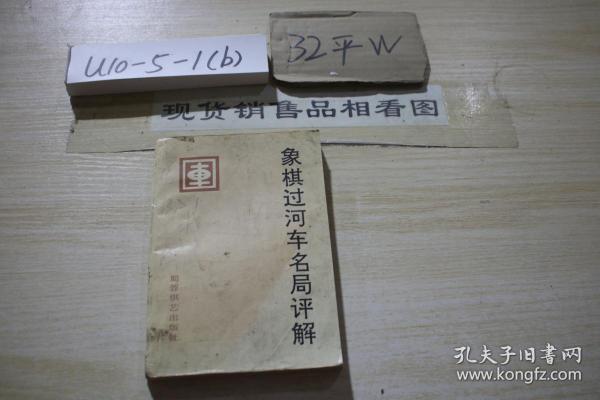 U10-5-1(b)
32平W
现货销售品相看图
車
象棋过河车名局评解
蜀蓉棋艺出版社
孔夫子旧书网
www.kongfz.com